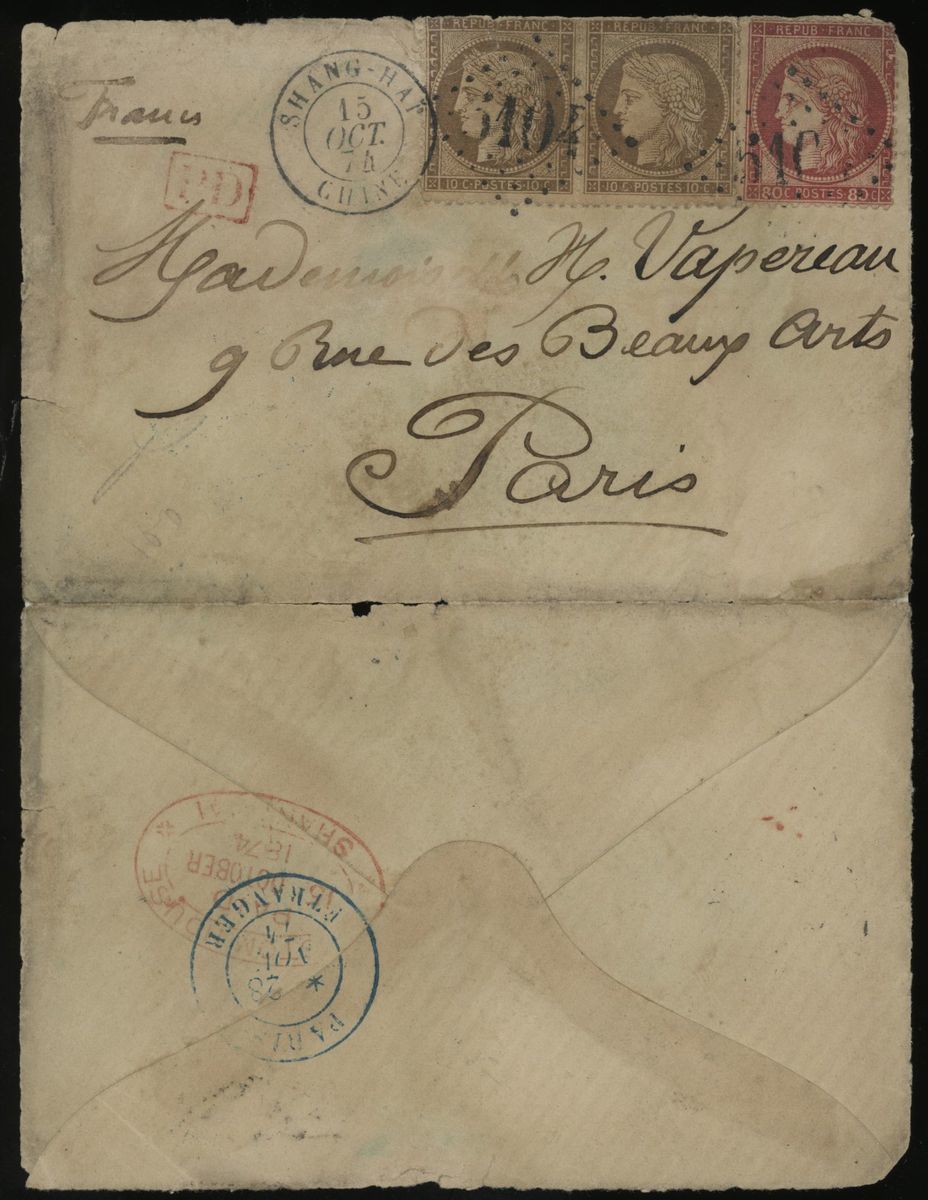 REPUB · FRANC ·
REPUB · FRANC ·
REPUB · FRANC ·
10 C · POSTES · 10 C
10 C · POSTES · 10 C
80 C · POSTES · 80 C
5104
SHANG-HAI
15
OCT.
74
CHINE
France
P.D
Mademoiselle H. Vapereau
9 Rue des Beaux Arts
Paris
1874
OCTOBER
15
PARIS
ETRANGER
23
74